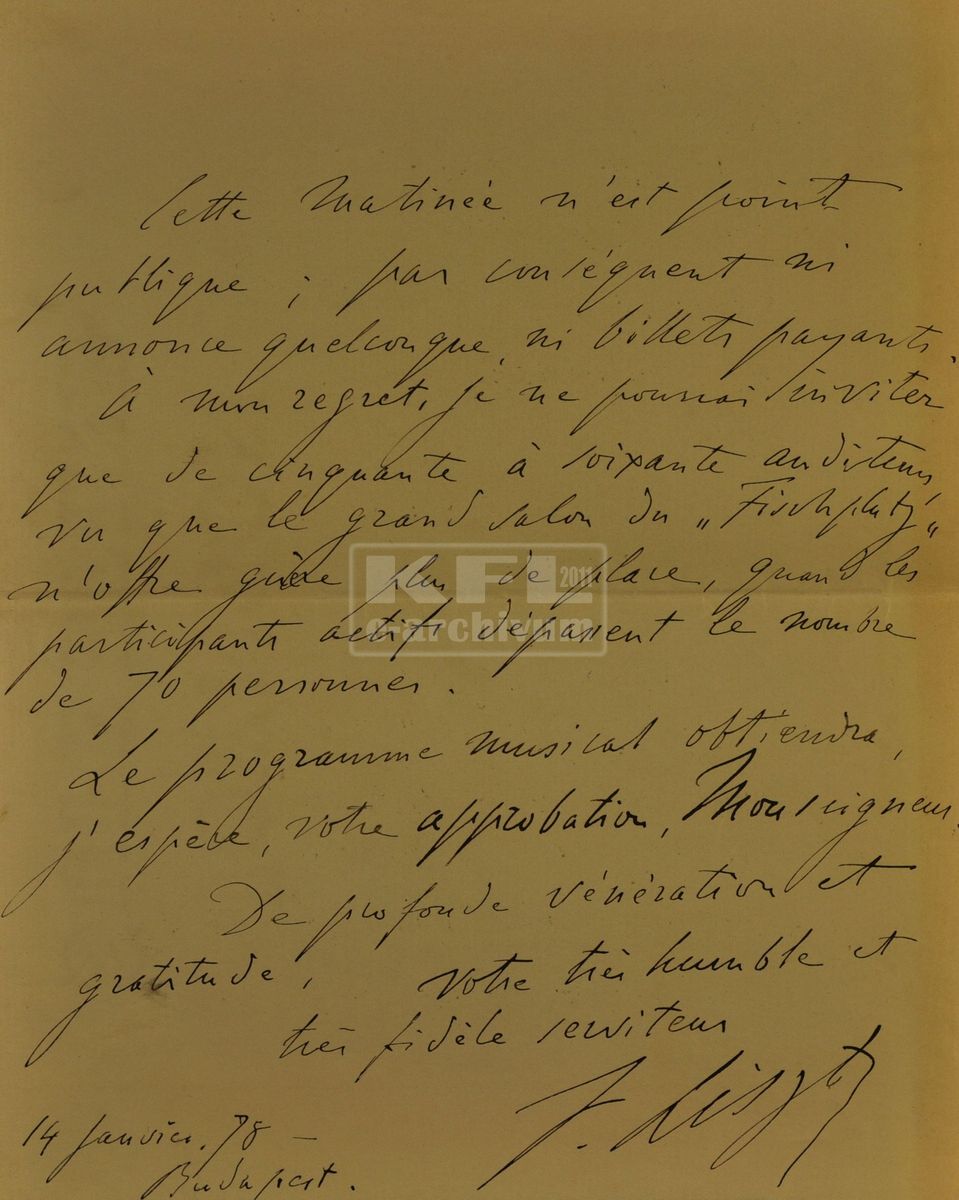 Cette Matinée n'est point
publique ; par conséquent ni
annonce quelconque, ni billets payants.
À mon regret, je ne pourrai inviter
que de cinquante à soixante auditeurs,
vu que le grand salon du „Fischplatz„
n'offre guère plus de place, quand les
participants actifs dépassent le nombre
de 70 personnes.
Le programme musical obtiendra,
j'espère, votre approbation, Monseigneur.
De profonde vénération et
gratitude, votre très humble et
très fidèle serviteur
F. Liszt
14 Janvier, 78 –
Budapest.
KFL 2011
e-archivum